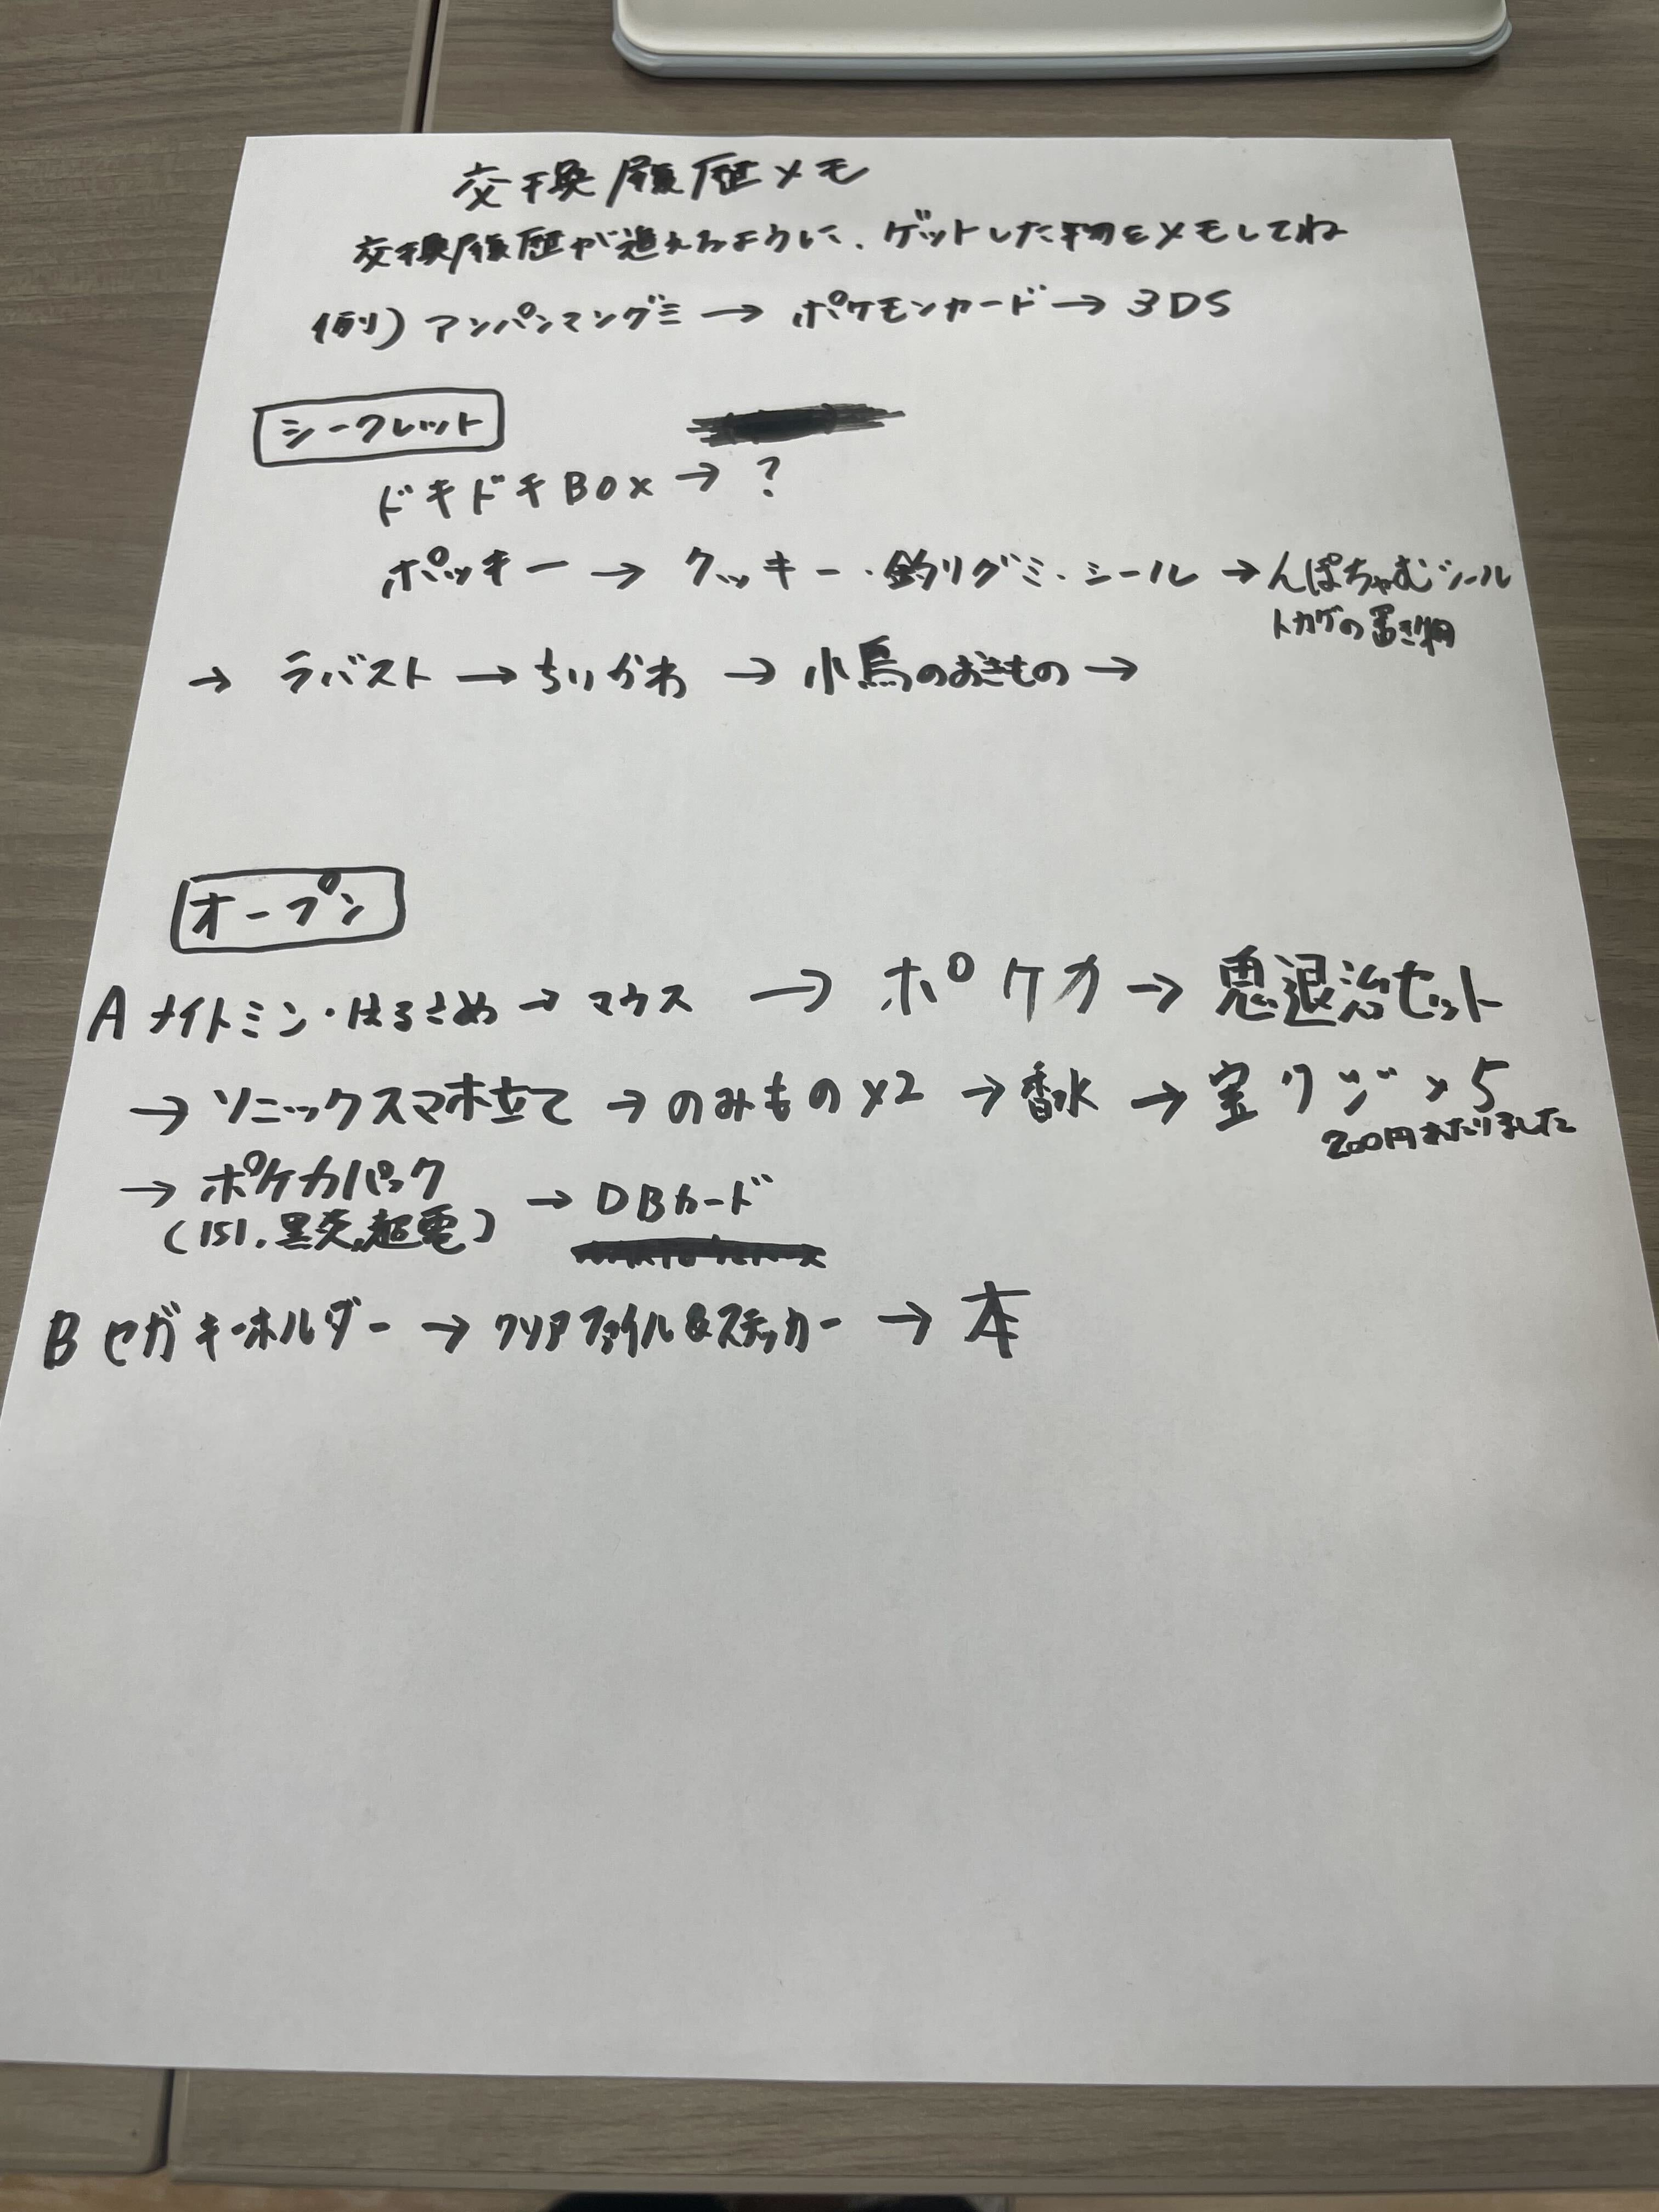 交換履歴メモ
交換履歴が追えるように、ゲットした物をメモしてね
(例) アンパンマングミ → ポケモンカード → 3DS
シークレット
ドキドキBOX → ?
ポッキー → クッキー・釣りグミ・シール → んぽちゃむシール
トカゲの置き物
→ ラバスト → ちいかわ → 小鳥のおきもの →
オープン
A ナイトミン・はるさめ → マウス → ポケカ → 鬼退治セット
→ ソニックスマホ立て → のみもの×2 → 香水 → 宝クジ×5
200円あたりました
→ ポケカパック → DBカード
(151、黒炎、超電)
B セガキーホルダー → クリアファイル&ステッカー → 本